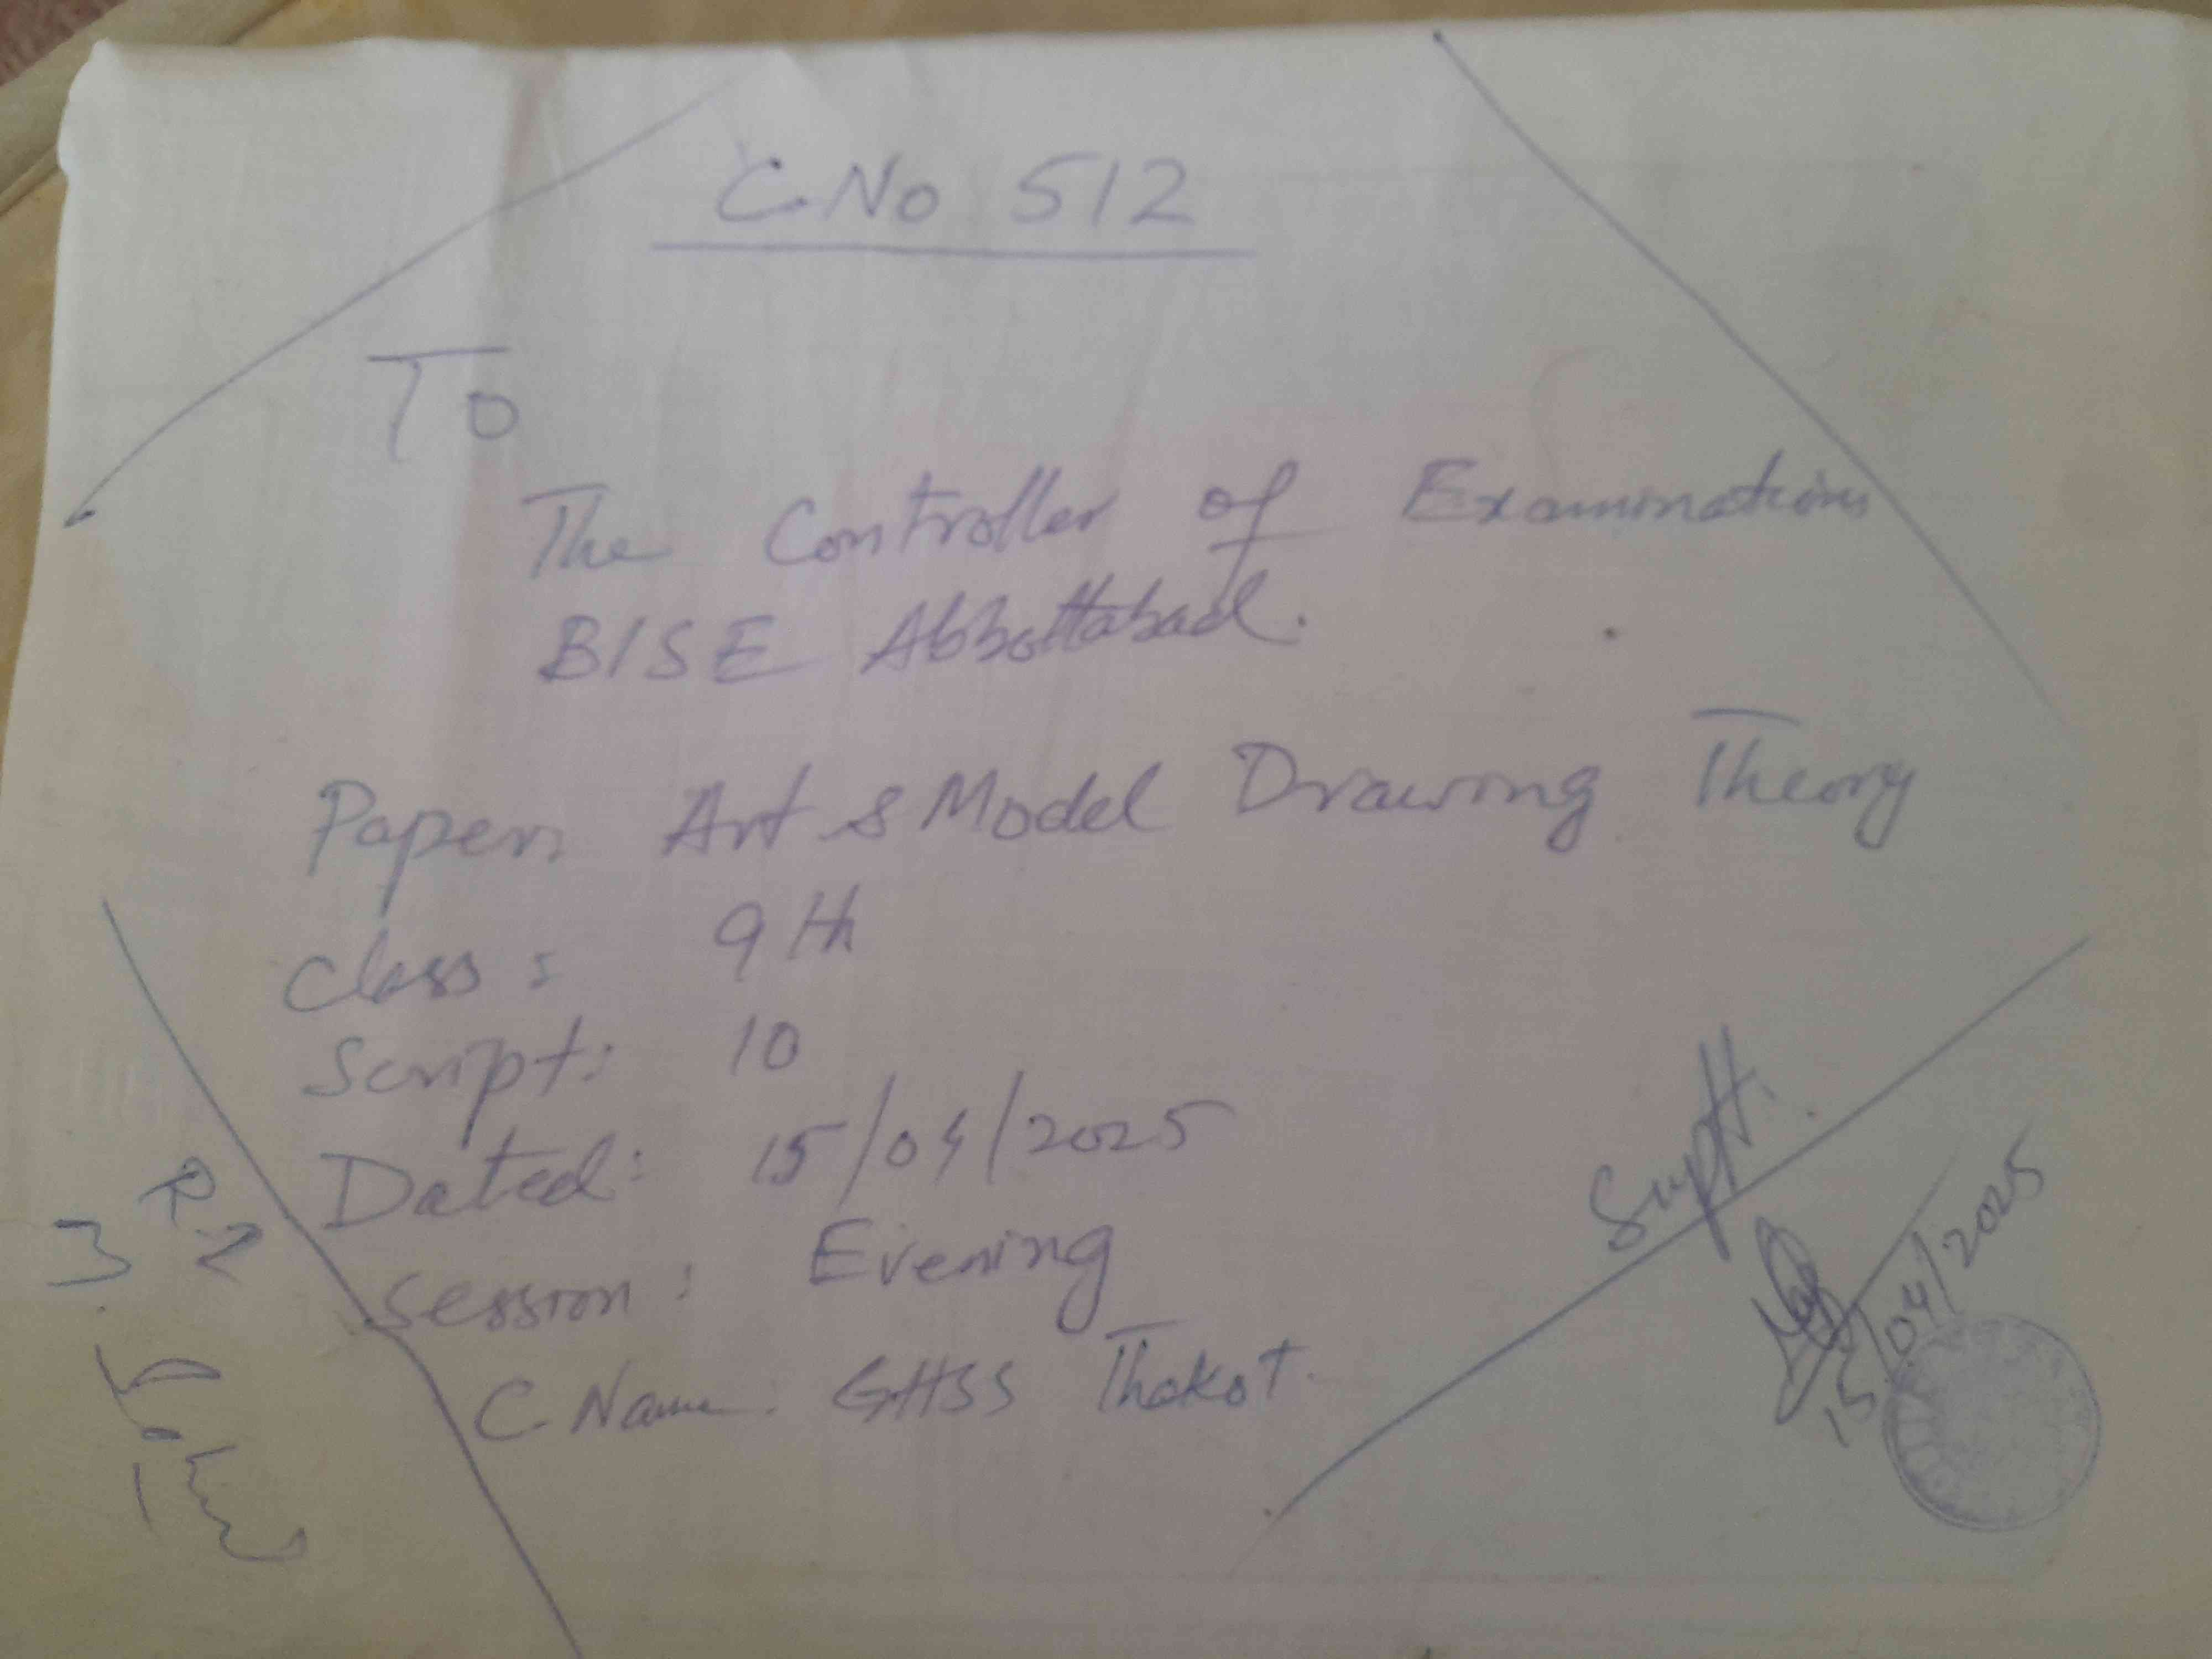 C.No 512
To
The Controller of Examinations
BISE Abbottabad.
Paper: Art & Model Drawing Theory
Class: 9th
Script: 10
Dated: 15/04/2025
Session: Evening
C Name: GHSS Thakot.
Suptt:
15/04/2025
R-2
3